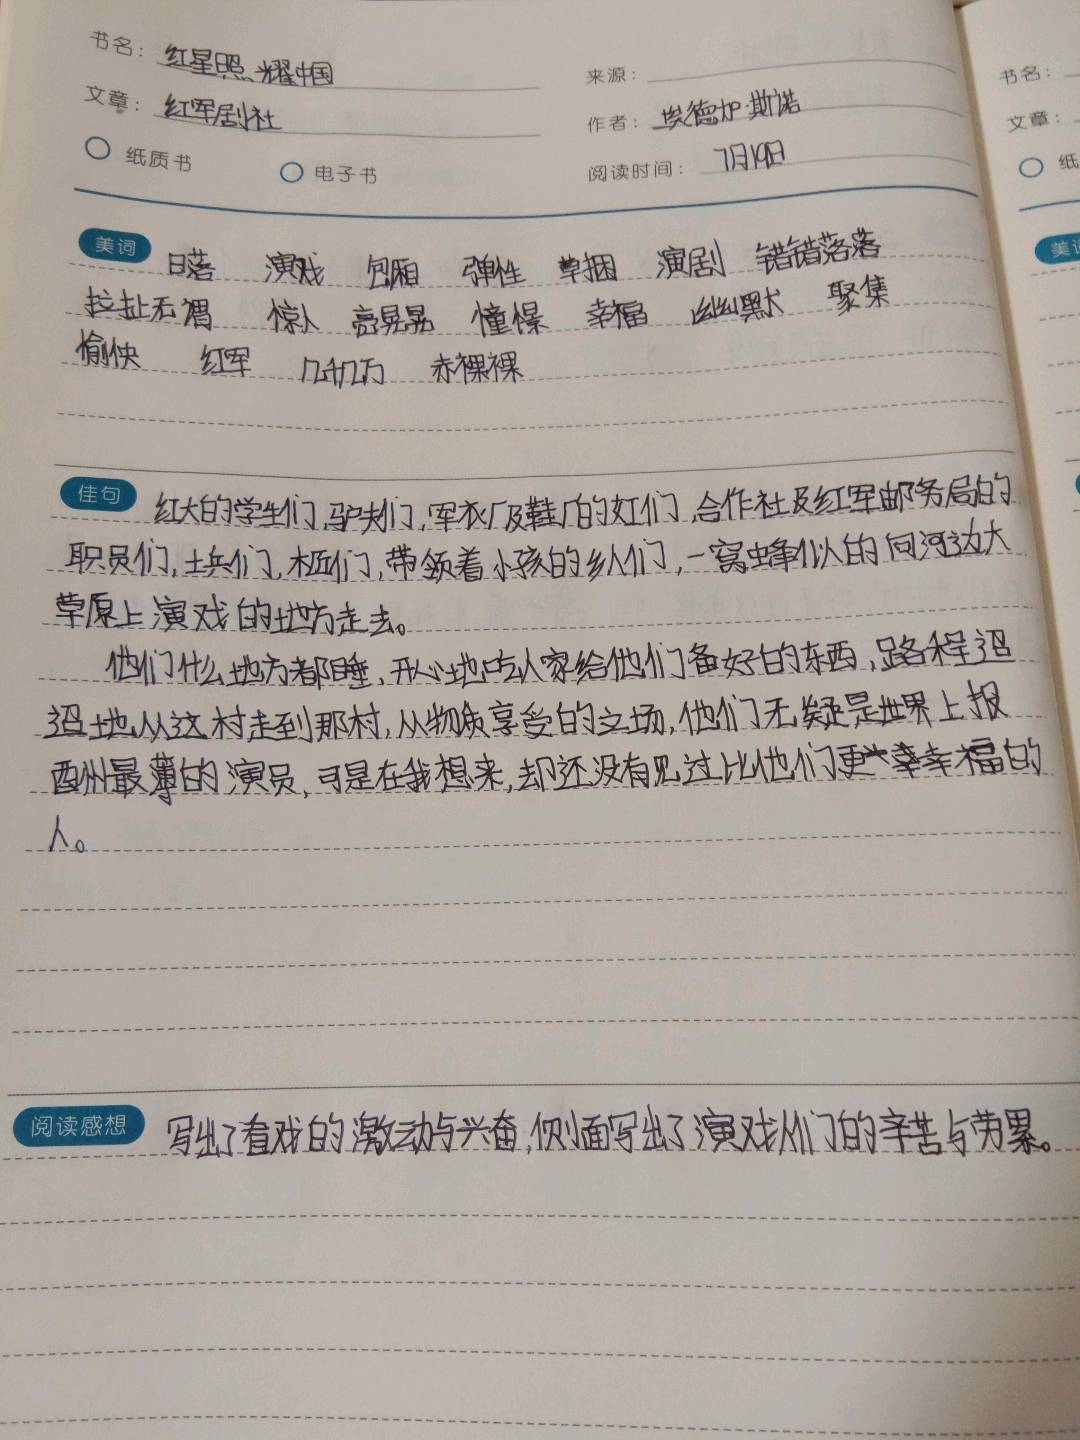 书名：红星照耀中国
来源：
文章：红军剧社
作者：埃德加·斯诺
纸质书 电子书
阅读时间：7月19日
美词 日落 演戏 包厢 弹性 草捆 演剧 错错落落
拉扯无谓 惊人 亮晃晃 憧憬 幸福 幽默 聚集
愉快 红军 几千几万 赤裸裸
佳句 红大的学生们,驴夫们,军衣厂及鞋厂的女工们,合作社及红军邮务局的
职员们,士兵们,木匠们,带领着小孩的乡人们,一窝蜂似的向河边大
草原上演戏的地方走去。
他们什么地方都睡,开心地吃人家给他们备好的东西,路程迢
迢地从这村走到那村,从物质享受的立场,他们无疑是世界上报
酉州最薄的演员,可是在我想来,却还没有见过比他们更幸福的
人。
阅读感想 写出了看戏的激动与兴奋,侧面写出了演戏人们的辛苦与劳累。
书名：
文章：
纸
美词